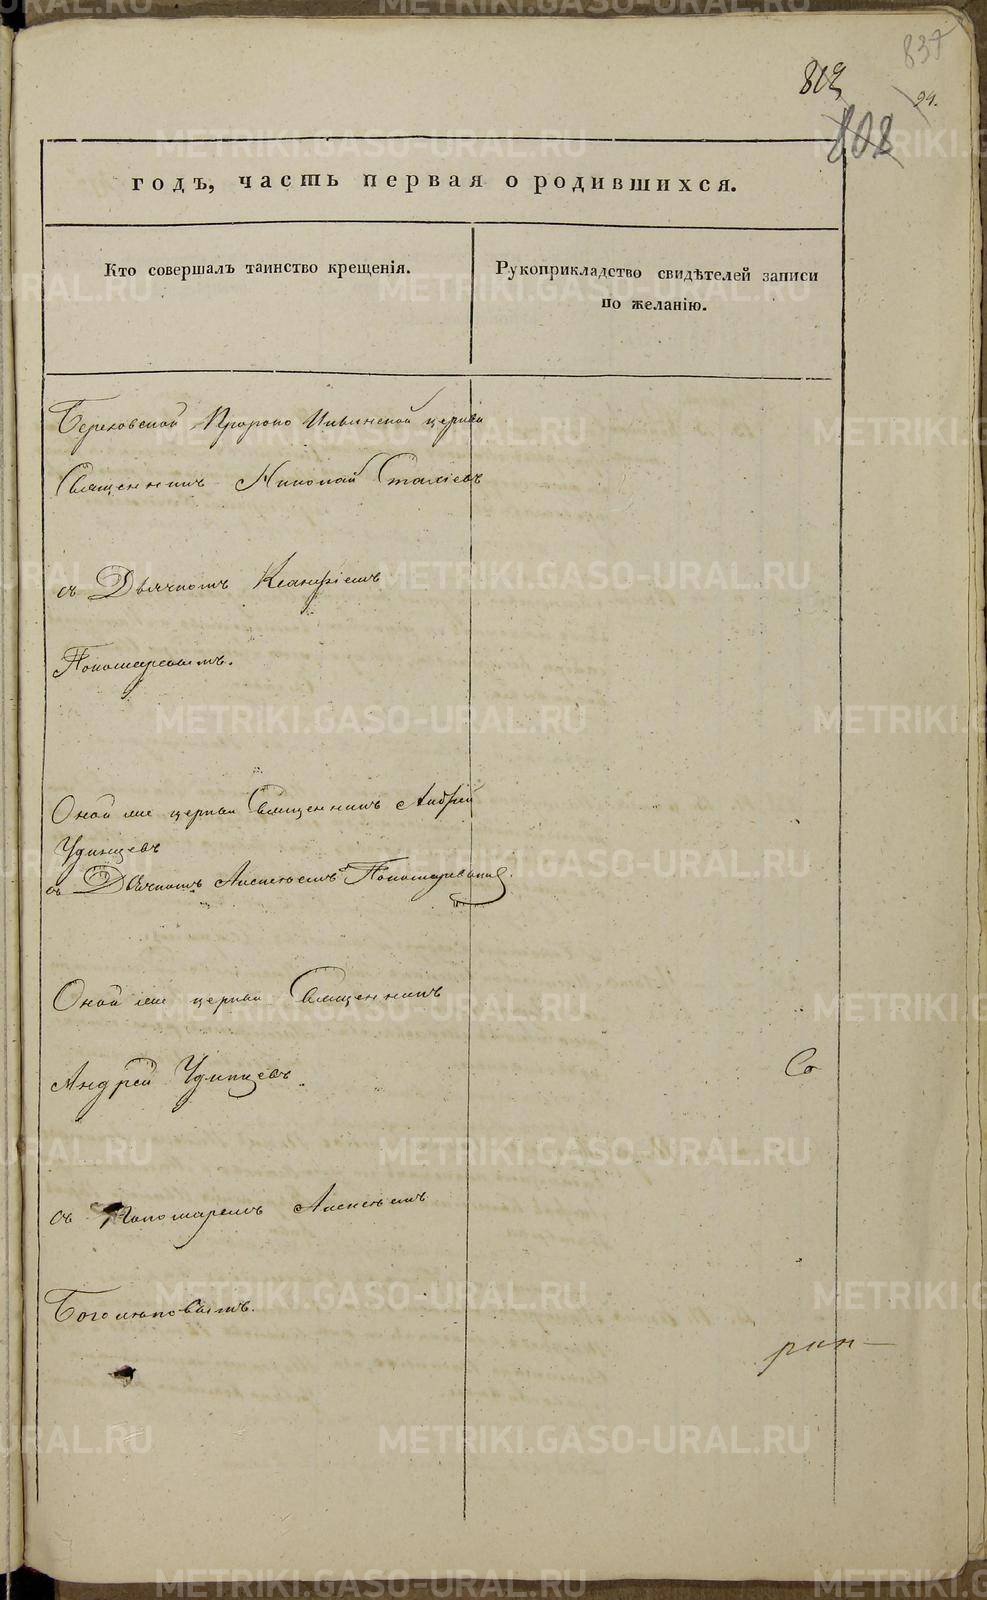 837
819
94.
808
годъ, часть первая о родившихся.
Кто совершалъ таинство крещенія.
Рукоприкладство свидѣтелей записи
по желанію.
Березовской Пророко Ильинской церкви
Священникъ Николай Стахіевъ
съ Дьячкомъ
Пономаревымъ.
Оной же церкви Священникъ Андрей
Удинцевъ
съ Дьячкомъ Алексѣемъ Пономаревымъ.
Оной же церкви Священникъ
Андрей Удинцевъ
Со
съ Пономаремъ Алексѣемъ
Боголюповымъ.
METRIKI.GASO-URAL.RU